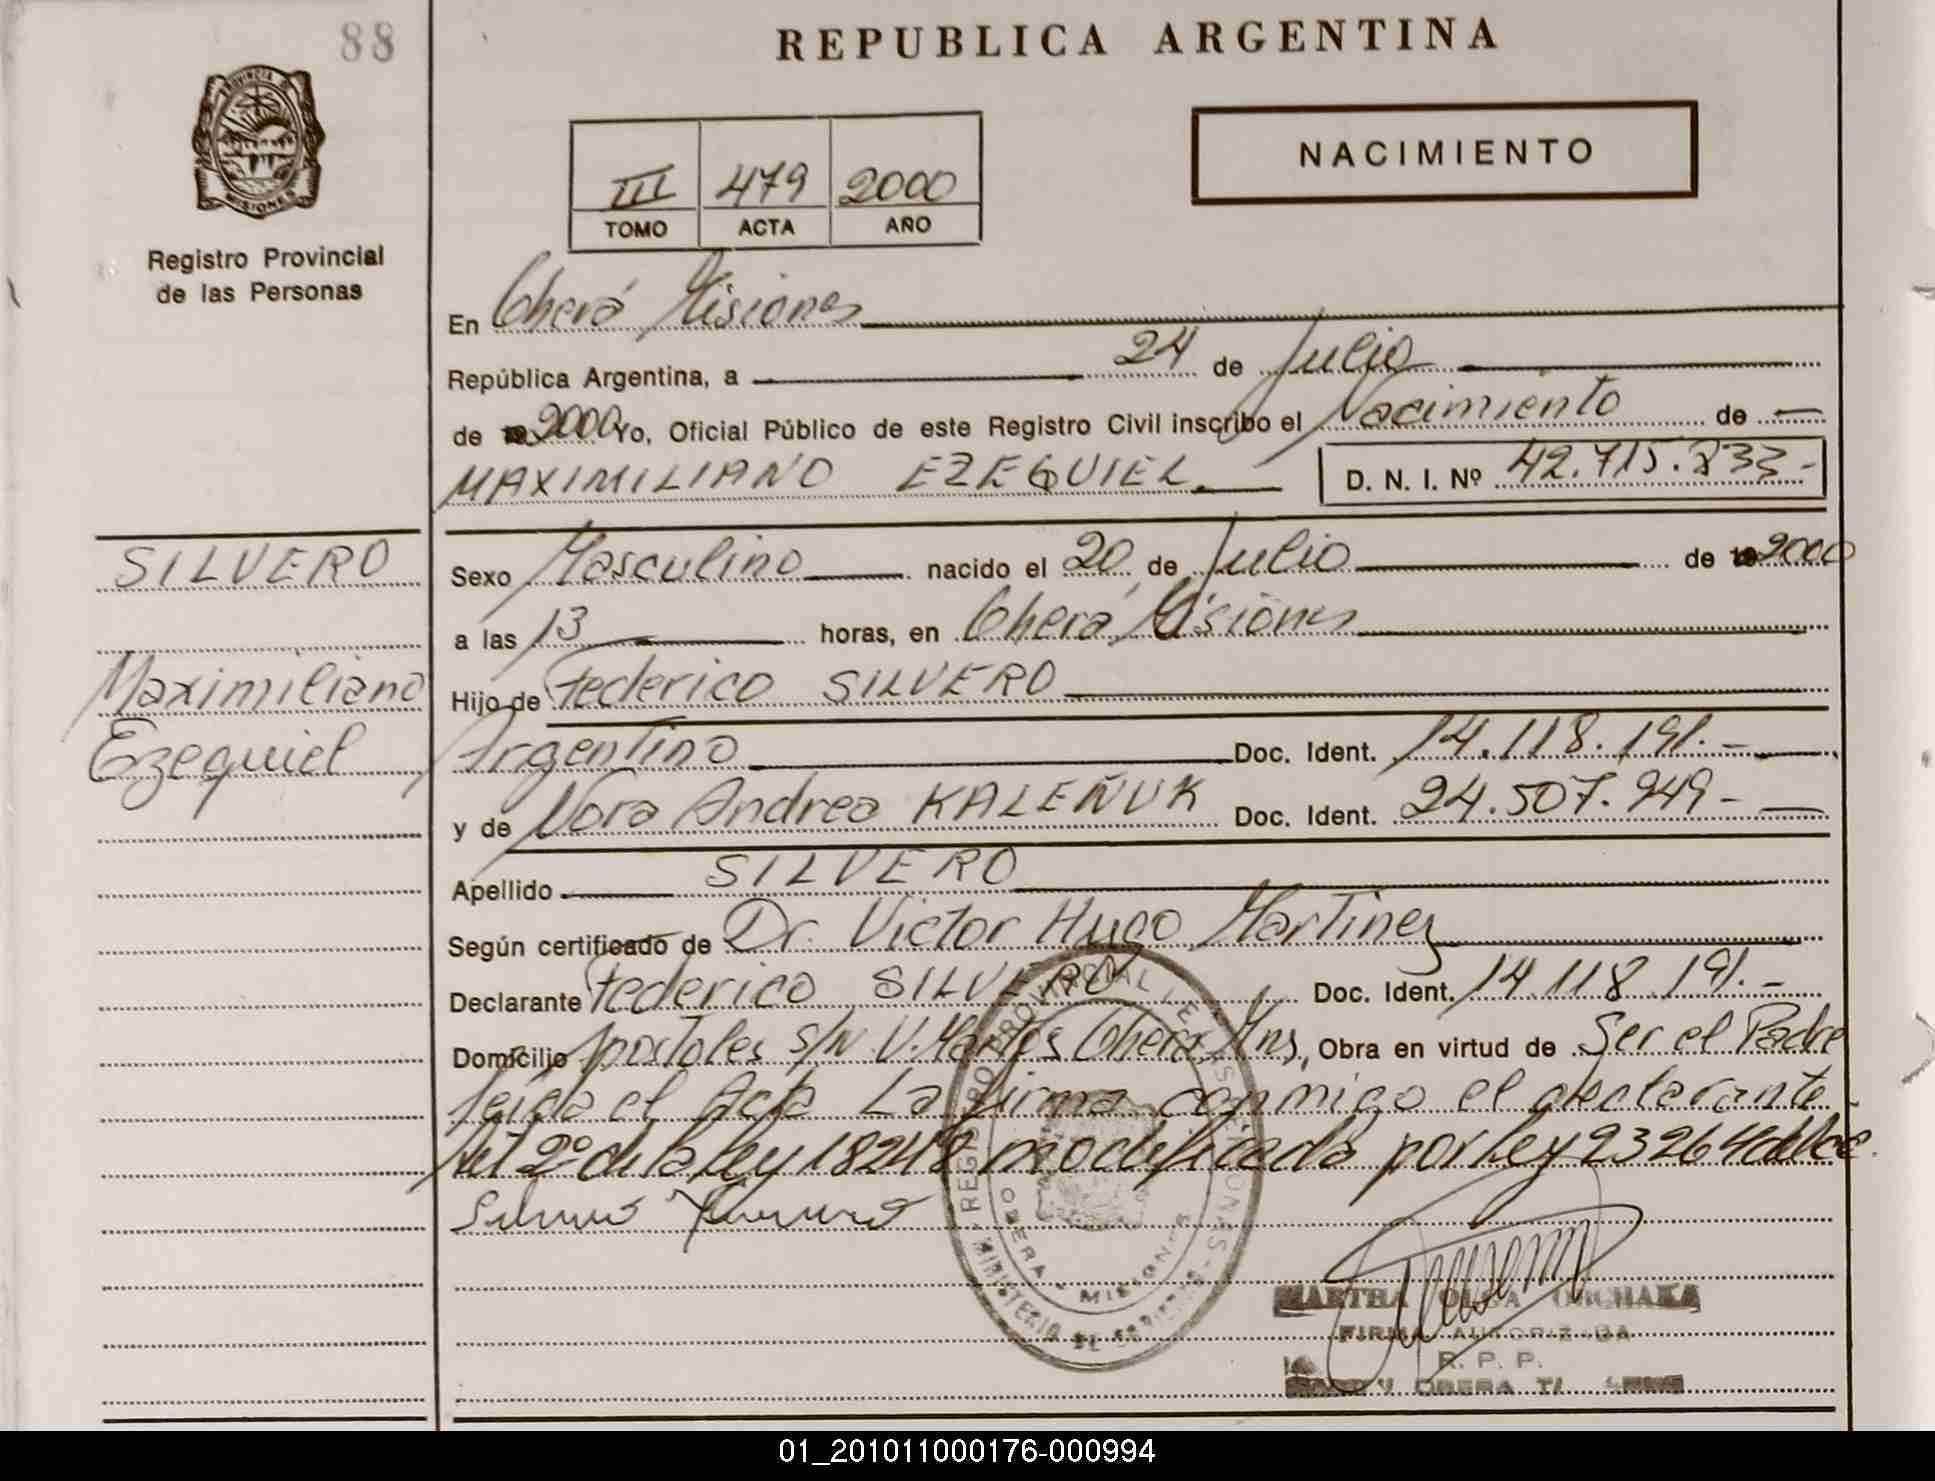 88
REPUBLICA ARGENTINA
NACIMIENTO
III 479 2000
TOMO ACTA AÑO
MISIONES
Registro Provincial
de las Personas
En Oberá Misiones
República Argentina, a 24 de Julio
de 2000 Yo, Oficial Público de este Registro Civil inscribo el Nacimiento de
MAXIMILIANO EZEQUIEL D. N. I. Nº 42.715.833.-
SILVERO
Maximiliano
Ezequiel
Sexo Masculino nacido el 20 de Julio de 2000
a las 13 horas, en Oberá Misiones
Hijo de Federico SILVERO
Argentino Doc. Ident. 14.118.191.-
y de Nora Andrea KALEÑUK Doc. Ident. 24.507.949-
Apellido SILVERO
Según certificado de Dr. Victor Hugo Martinez
Declarante Federico SILVERO Doc. Ident. 14.118.191.-
Domicilio Apostoles S/N V. Martos Oberá Mns, Obra en virtud de Ser el Padre
leida el Acta La firma conmigo el declarante
Art 2º de la ley 18248 modificada por ley 23264
REGISTRO PROVINCIAL DE LAS PERSONAS
OBERA - MISIONES
MINISTERIO DE GOBIERNO
MARTHA OLGA
FIRMA AUTORIZADA
R. P. P.
OBERA
01_201011000176-000994